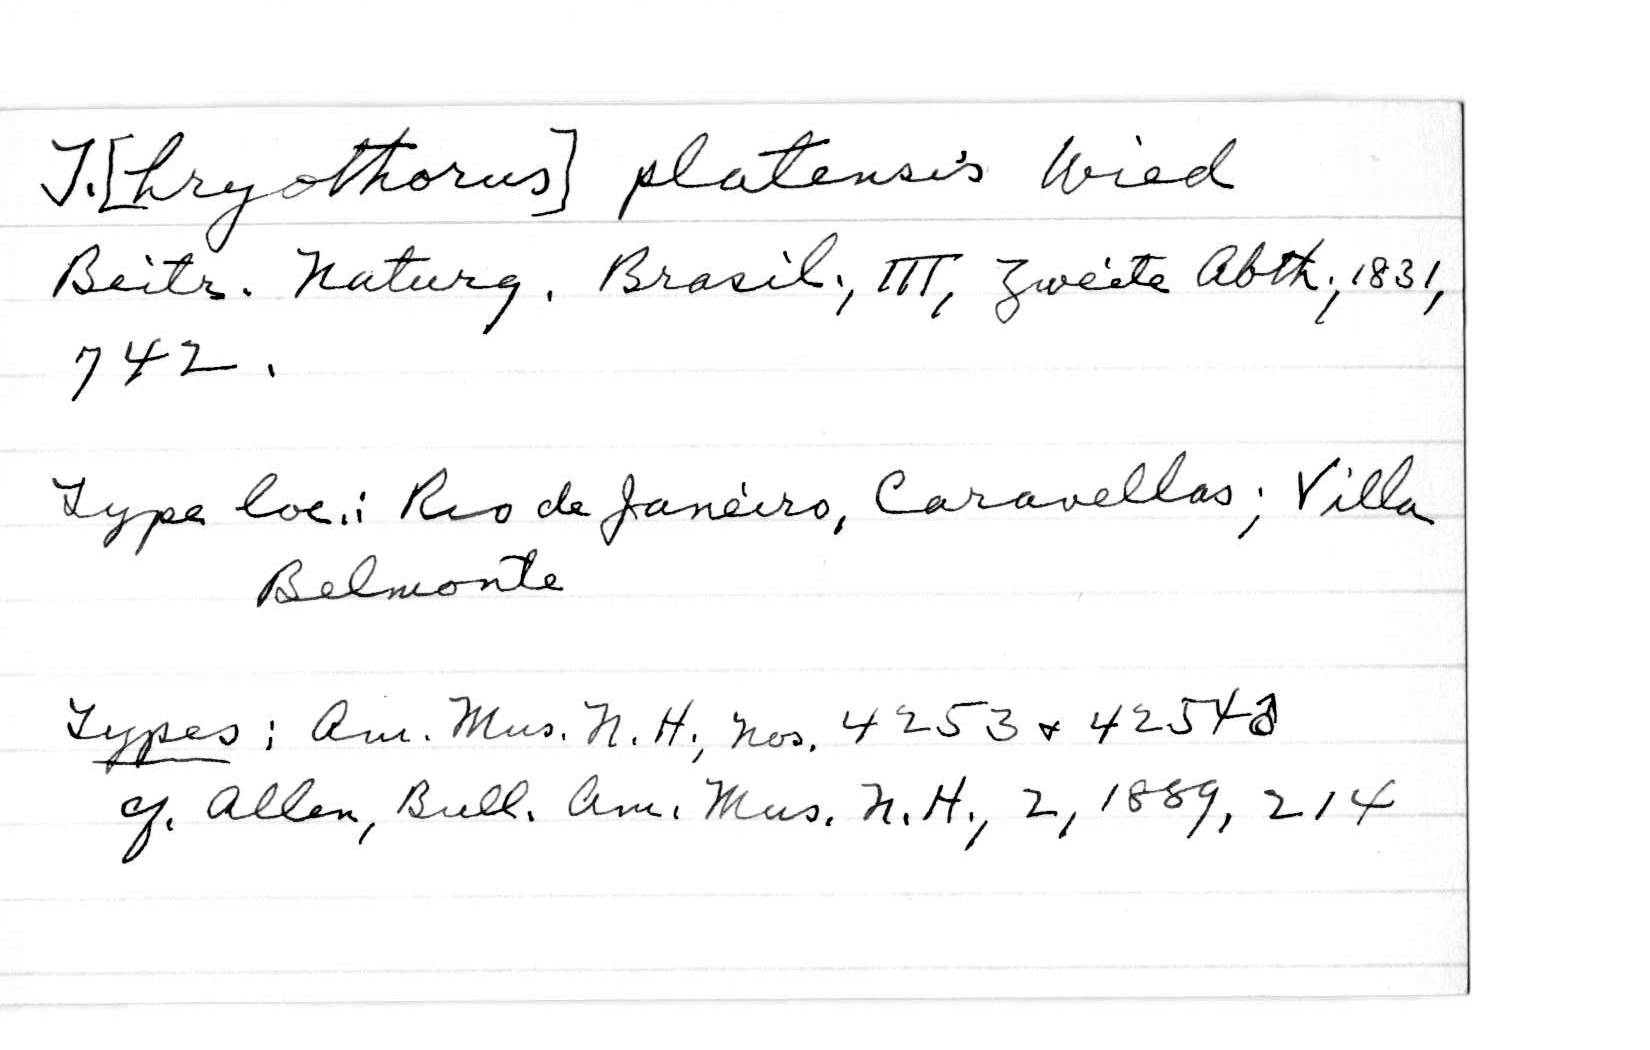 T.[hryothorus] platensis Wied
Beitr. Naturg. Brasil., III, Zweite Abth., 1831,
742.
Type loc.: Rio de Janeiro, Caravellas; Villa
Belmonte
Types: Am. Mus. N.H., Nos. 4253 & 4254 ♂
cf. Allen, Bull. Am. Mus. N.H., 2, 1889, 214